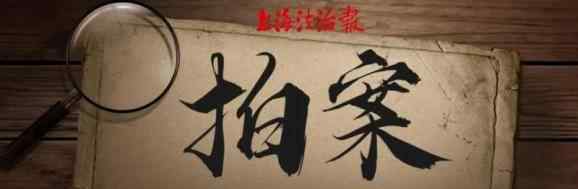 上海法治報
拍案